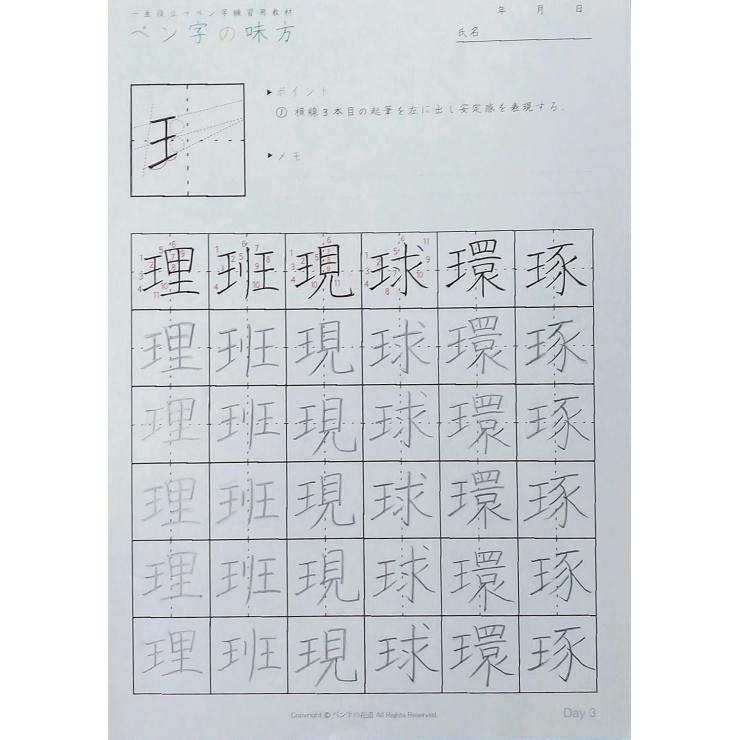 一生役立つペン字練習用教材
ペン字の味方
年 月 日
氏名
王
▶ポイント
① 横線3本目の起筆を左に出し安定感を表現する.
▶メモ
理 班 現 球 環 琢
理 班 現 球 環 琢
理 班 現 球 環 琢
理 班 現 球 環 琢
理 班 現 球 環 琢
理 班 現 球 環 琢
Copyright © ペン字の花道 All Rights Reserved.
Day 3